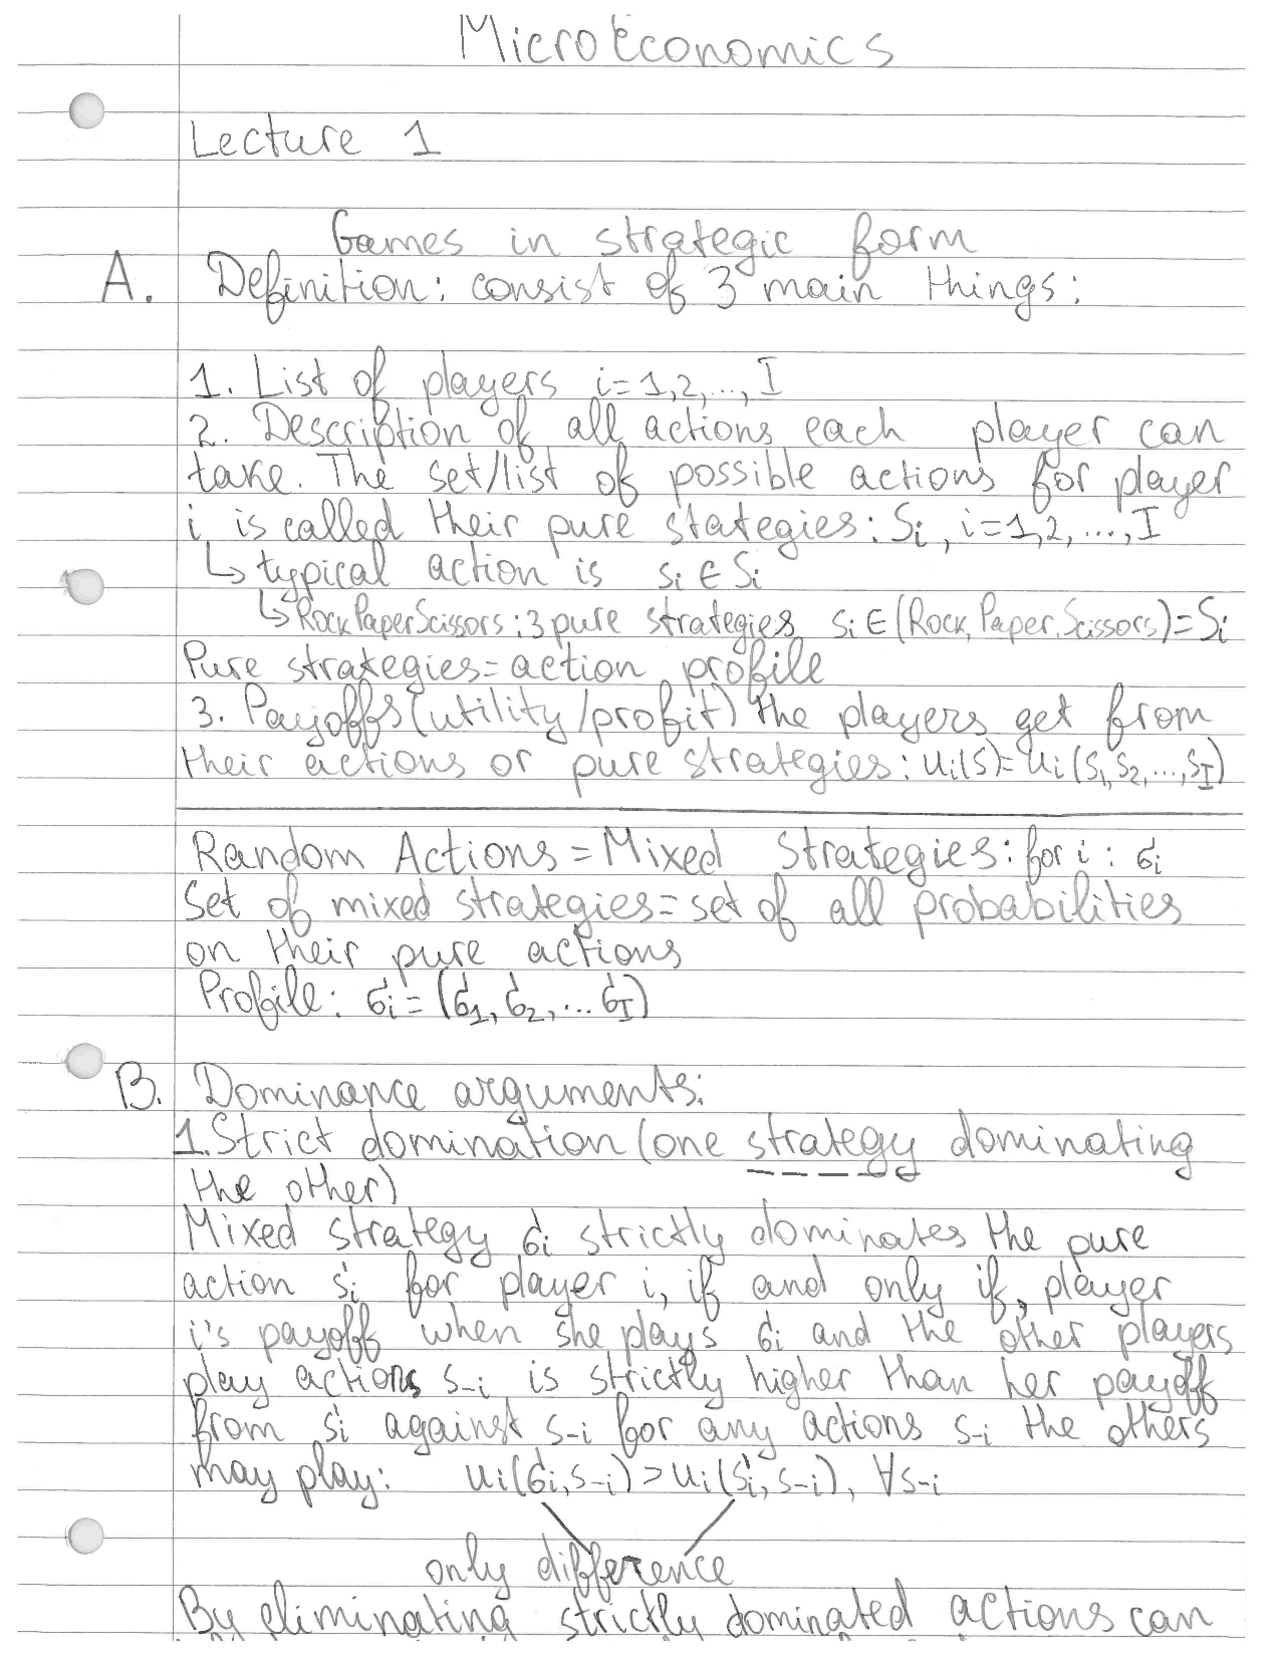 MicroEconomics
Lecture 1
Games in strategic form
A. Definition: consist of 3 main things:
1. List of players i=1,2,..., I
2. Description of all actions each player can
take. The set/list of possible actions for player
i is called their pure stategies: Si, i=1,2,...,I
↳ typical action is si ∈ Si
↳ RockPaperScissors: 3 pure strategies si ∈ (Rock, Paper, Scissors) = Si
Pure strategies = action profile
3. Payoffs (utility/profit) the players get from
their actions or pure strategies: ui(s) = ui(s1, s2, ..., sI)
Random Actions = Mixed Strategies: for i: σi
Set of mixed strategies = set of all probabilities
on their pure actions
Profile: σi' = (σ1', σ2', ... σI')
B. Dominance arguments:
1. Strict domination (one strategy dominating
the other)
Mixed strategy σi' strictly dominates the pure
action si' for player i, if and only if, player
i's payoff when she plays σi and the other players
play actions s-i is strictly higher than her payoff
from si' against s-i for any actions s-i the others
may play: ui(σi', s-i) > ui(si', s-i), ∀s-i
only difference
By eliminating strictly dominated actions can